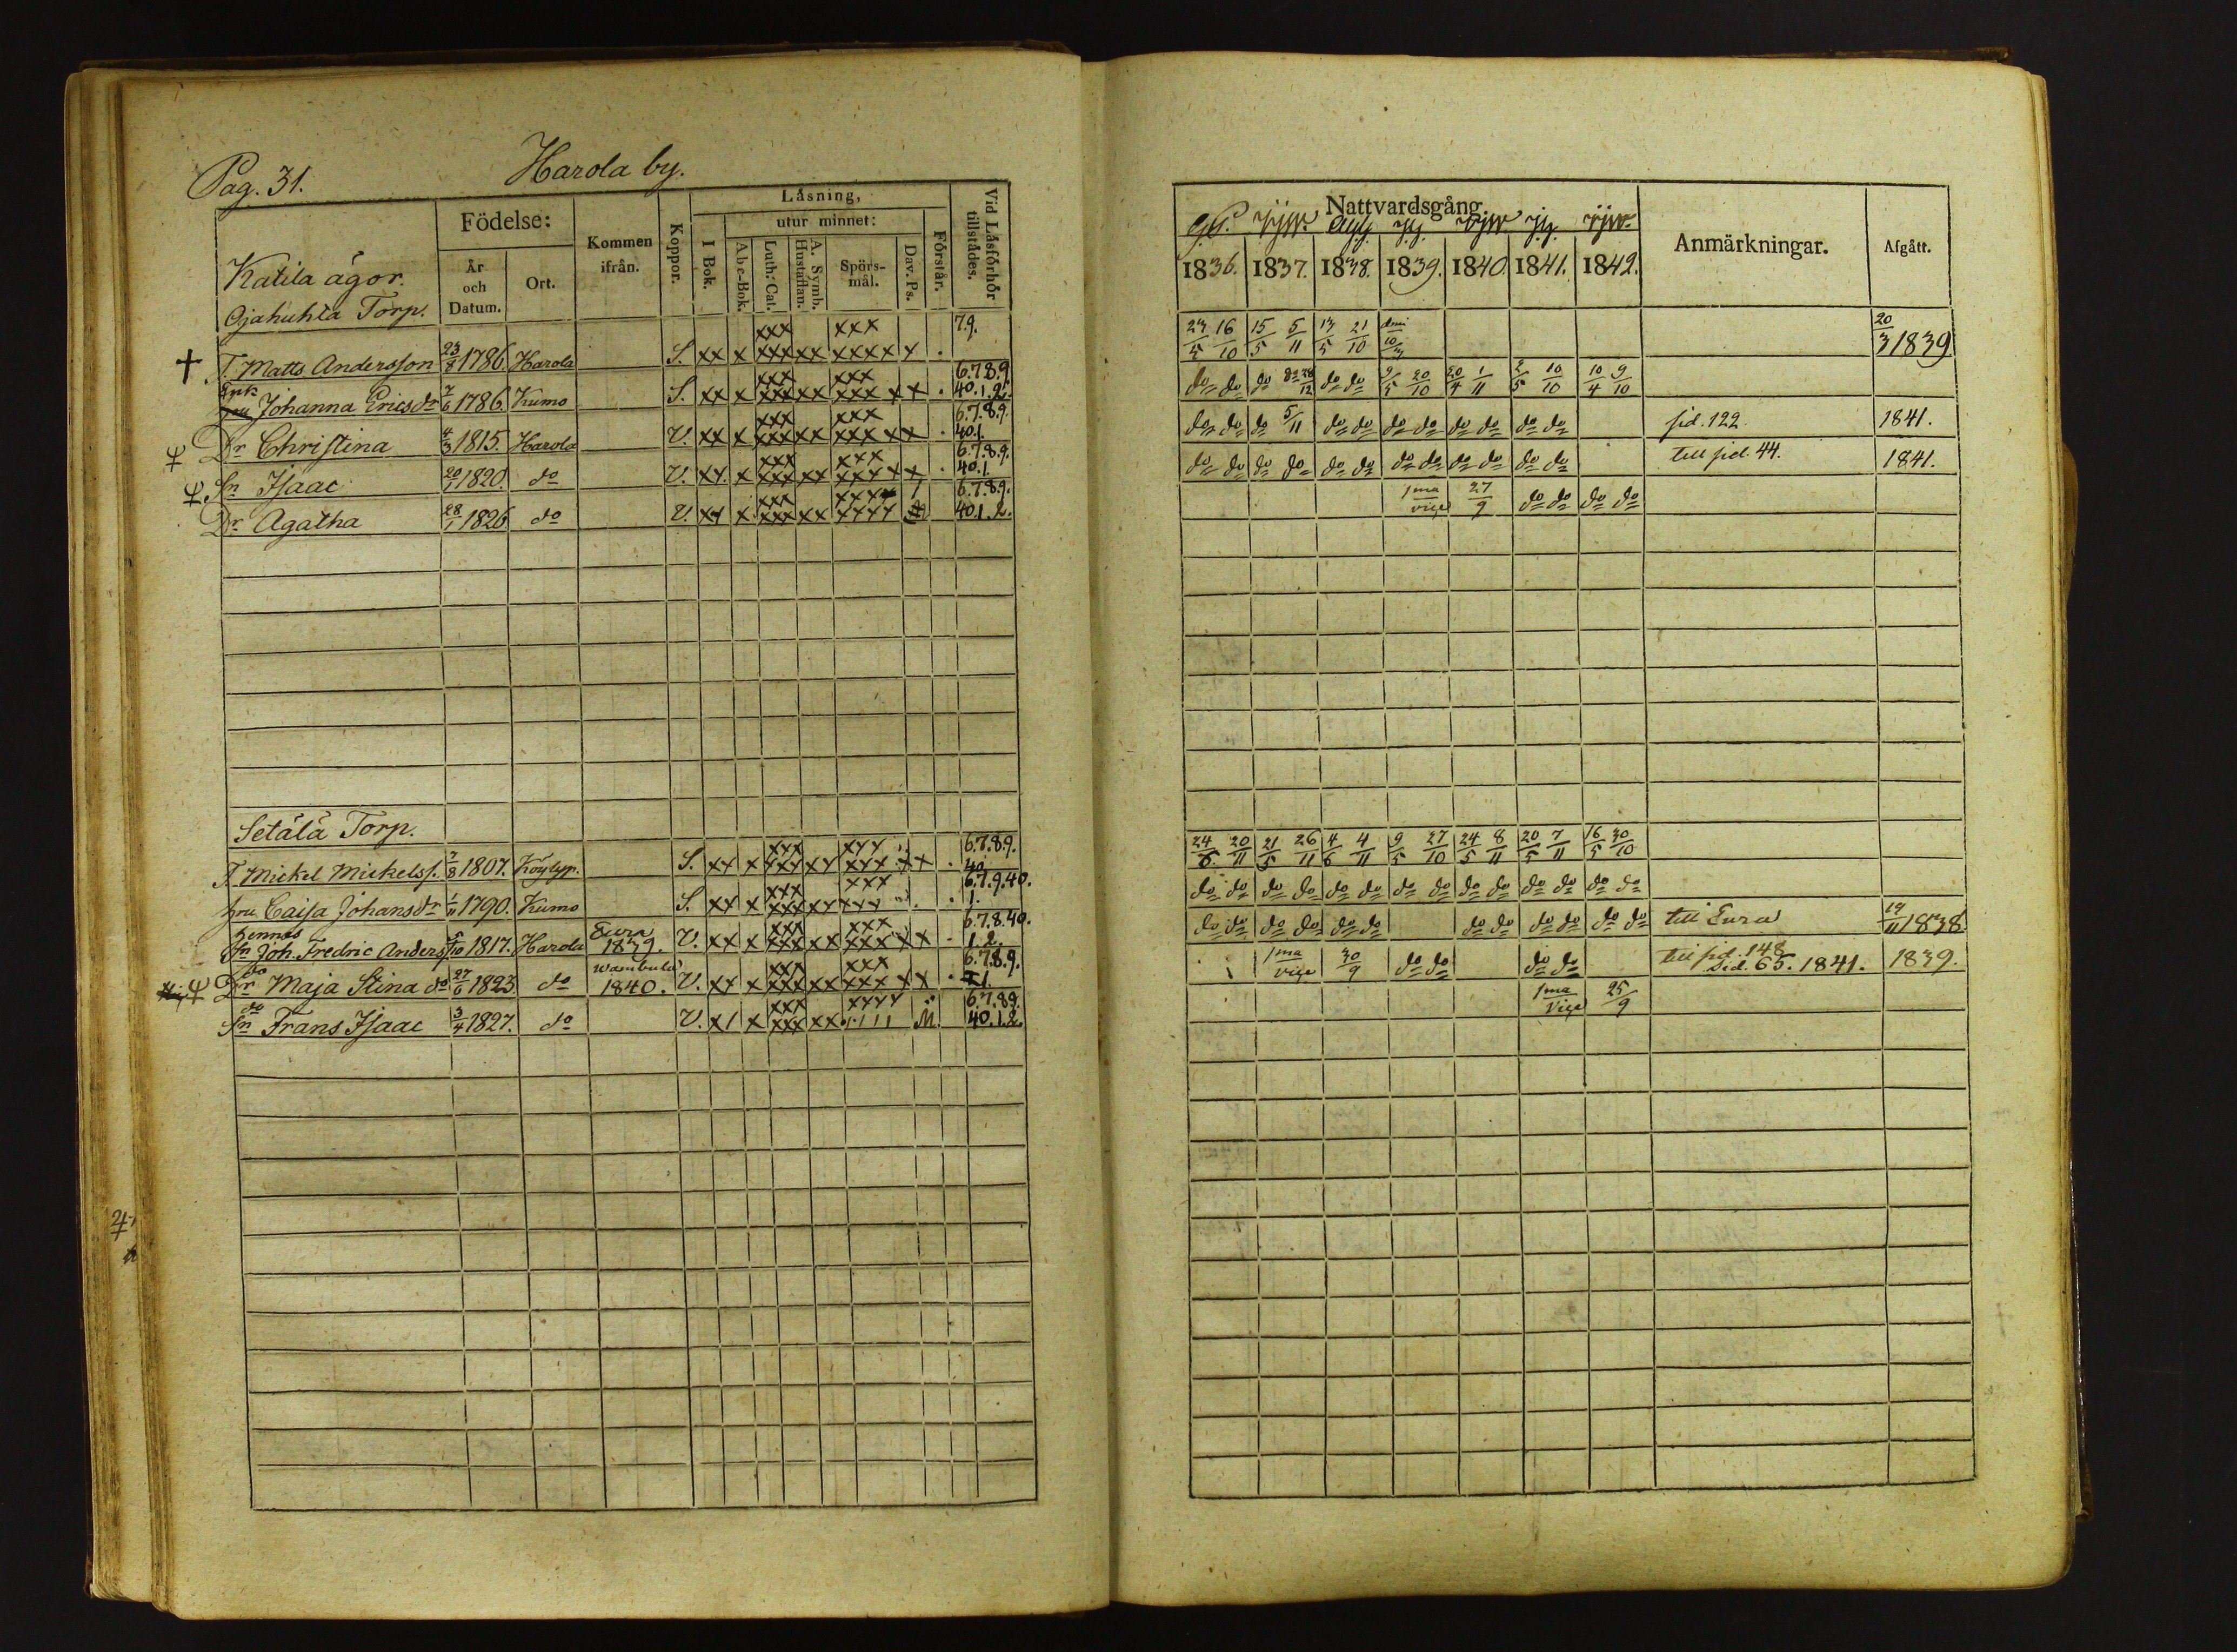 Pag. 31. Harola by.
Födelse: Kommen ifrån. Koppor. Låsning, Vid Låsförhör tillstådes.
utur minnet:
År och Datum. Ort. I Bok. Abc-Bok. Luth: Cat. A. Symb. Hustaflan. Spörs-mål. Dav. Ps. Förstår.
Katila ägor.
Ojahuhta Torp.
† T. Matts Andersson 23/8 1786. Harola S. xx x xxx xxx xx xxx xxxx x . 7.9.
Enk hru Johanna Ericsdr 7/6 1786. Kumo S. xx x xxx xxx xx xxx xxx xx . 6.7.8.9. 40.1.2.
Dr Christina 4/3 1815. Harola V. xx x xxx xxx xx xxx xxx xx . 6.7.8.9. 40.1.
Sn Isaac 20/1 1820. do V. xx x xxx xxx xx xxx xxx xx . 6.7.8.9. 40.1.
Dr Agatha 28/1 1826 do V. xx x xxx xxx xx xxxx xxxx 6.7.8.9. 40.1.2.
Setälä Torp.
T. Mickel Mickelss. 7/8 1807. Köylyp. S. xx x xxx xxx xx xxx xxx xx . 6.7.8.9. 40.
hru Caisa Johansdr 1/11 1790. Kumo S. xx x xxx xxx xx xxx xxx . 6.7.9.40. 1.
hennes Sn Joh. Fredric Anderss. 5/10 1817. Harola Eura 1839. V. xx x xxx xxx xx xxx xxx xx 6.7.8.40. 1.2.
do Dr Maja Stina do 27/6 1823 do Wambula 1840. V. xx x xxx xxx xx xxx xxx xx 6.7.8.9.
do Sn Frans Isaac 3/4 1827. do V. x1 x xxx xxx xx xxxx M. 6.7.8.9. 40.1.2.
Nattvardsgång. Anmärkningar. Afgått.
1836. 1837. 1838. 1839. 1840. 1841. 1842.
23/5 16/10 15/5 5/11 13/5 21/10 20/3 1839
do do do 28/12 do do 9/5 20/10 20/4 1/11 2/5 10/10 10/4 9/10
do do do 5/11 do do do do do do do do sid. 122. 1841.
do do do do do do do do do do do do till sid. 44. 1841.
1ma vice 27/9 do do do do
24/5 20/11 21/5 26/11 4/6 4/11 9/5 27/10 24/5 8/11 20/5 7/11 16/5 30/10
do do do do do do do do do do do do do do
do do do do do do do do do do do do till Eura 19/11 1838.
1ma vice 30/9 do do do do till sid. 148 Sid. 65. 1841. 1839.
1ma Vice 25/9